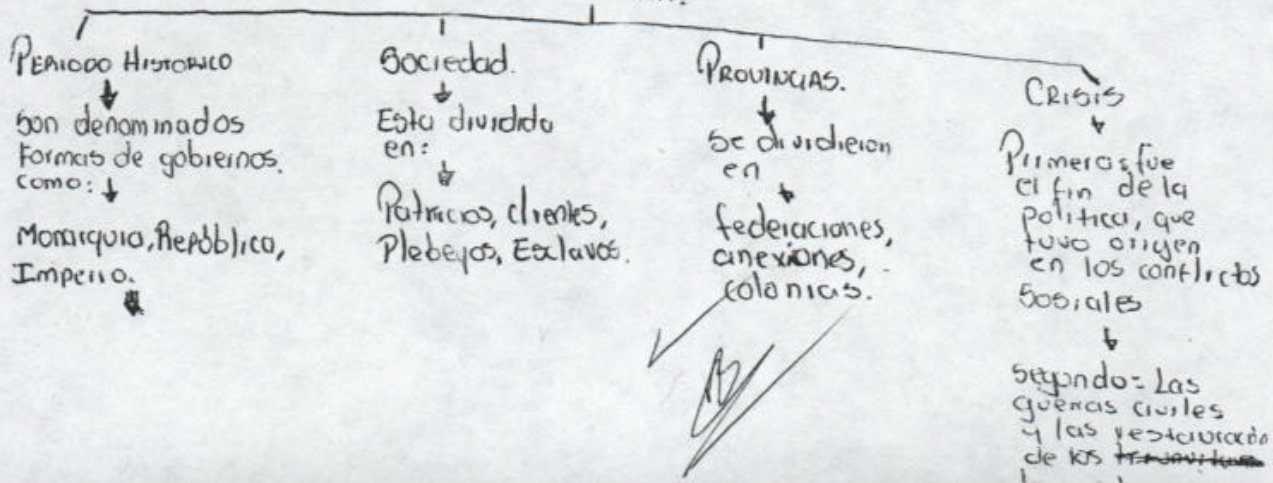 PERIODO HISTORICO
Son denominados
Formas de gobiernos.
como:
Monarquia, República,
Imperio.
Sociedad.
Esta dividida
en:
Patricios, clientes,
Plebeyos, Esclavos.
PROVINCIAS.
Se dividieron
en
federaciones,
anexiones,
colonias.
CRISIS
Primeras fue
el fin de la
politica, que
tuvo origen
en los conflictos
Sosiales
Segundo: Las
guerras civiles
y las restauración
de los